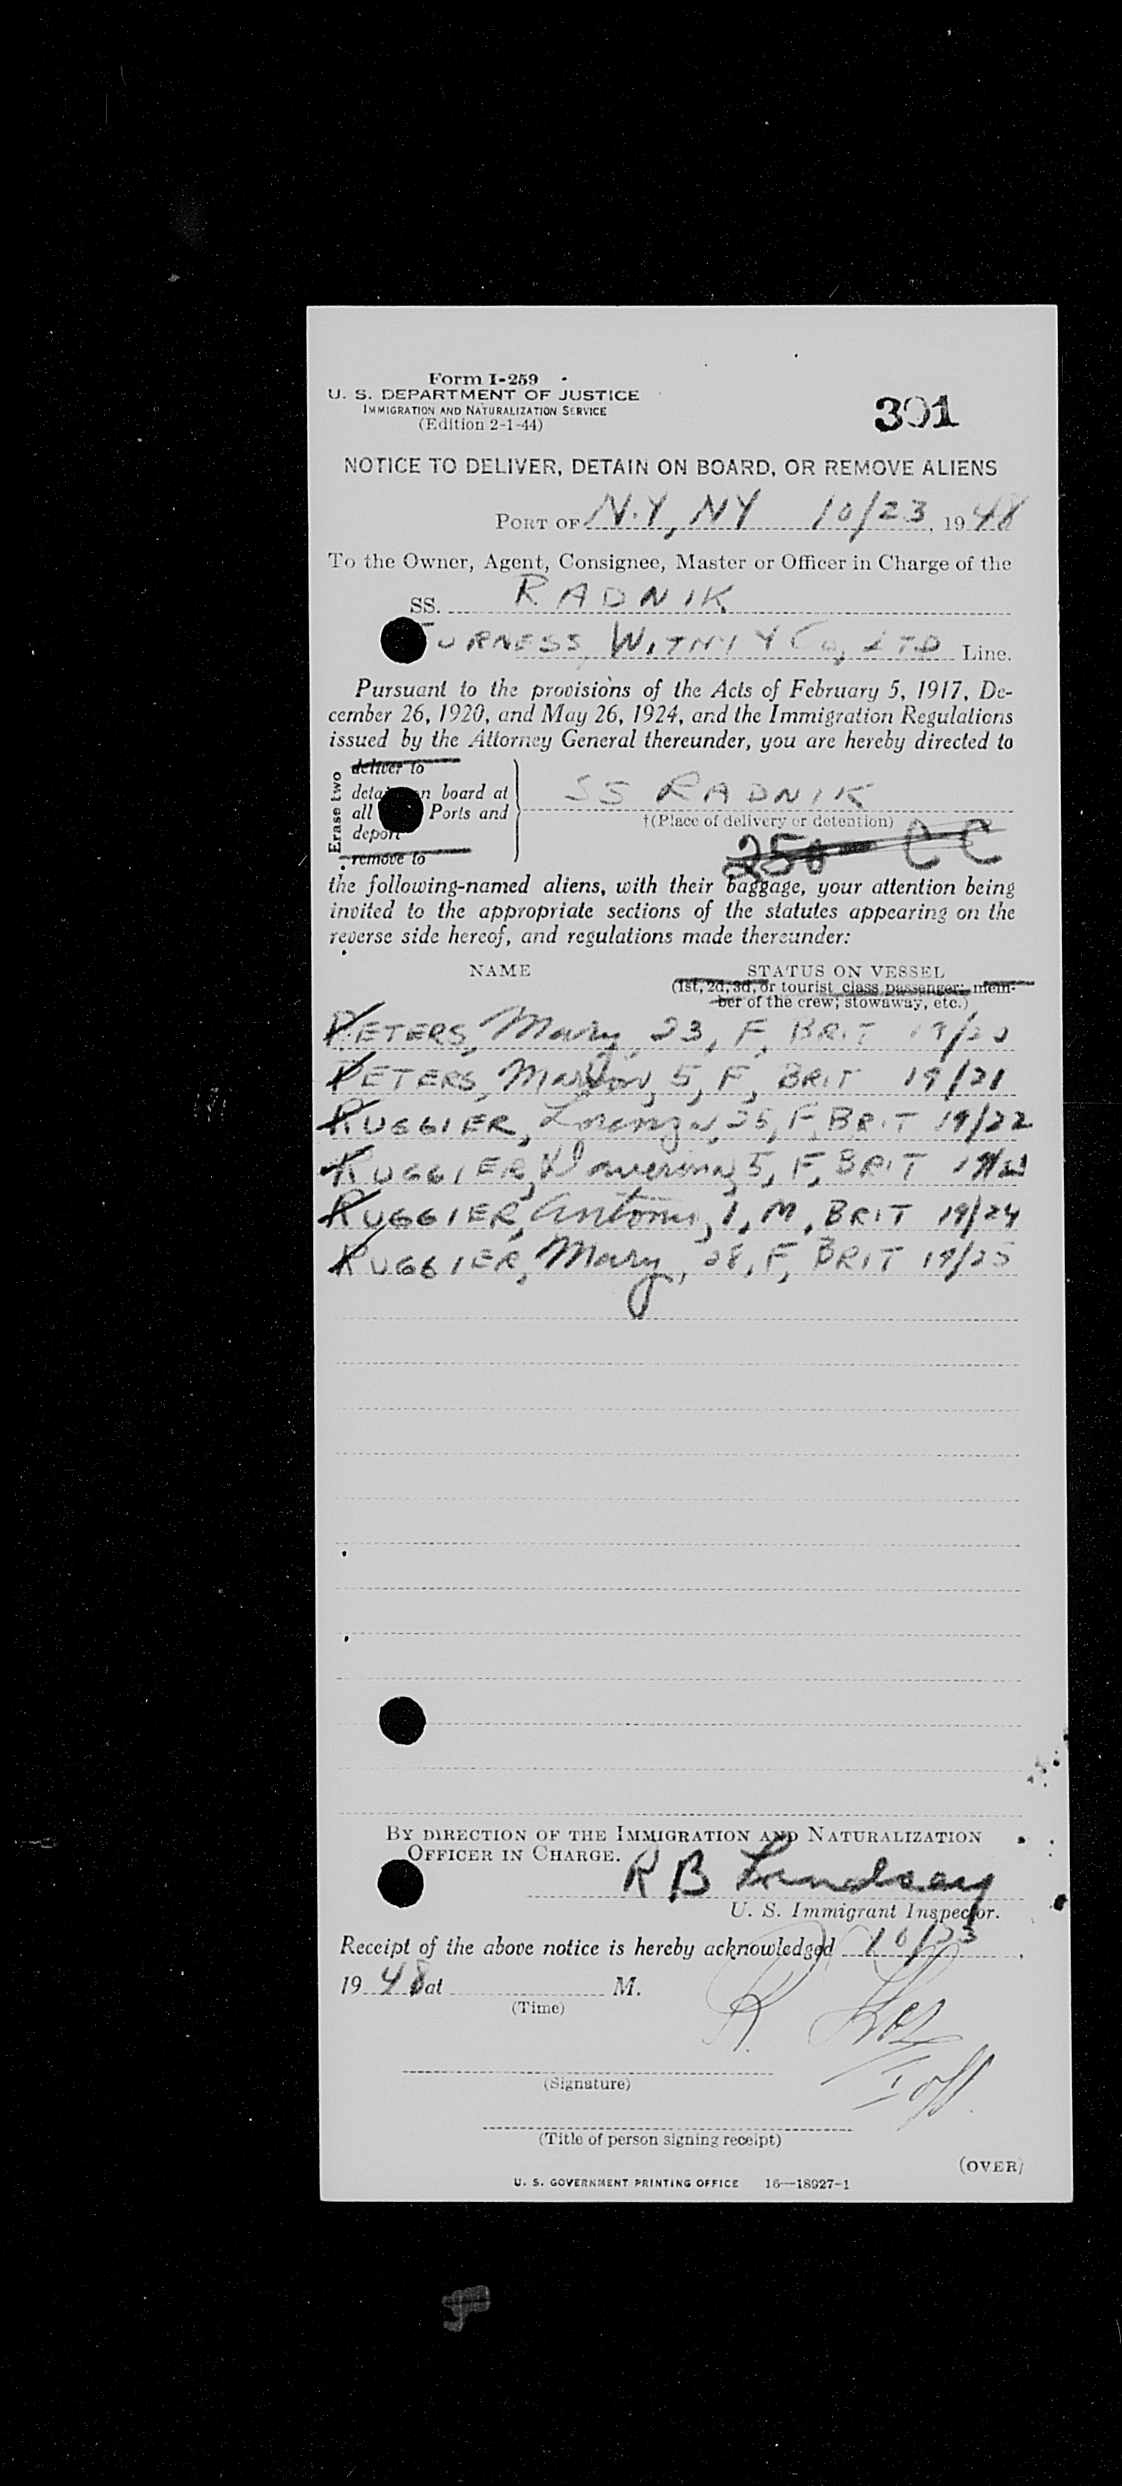 Form I-259
U. S. DEPARTMENT OF JUSTICE
IMMIGRATION AND NATURALIZATION SERVICE
(Edition 2-1-44)
301
NOTICE TO DELIVER, DETAIN ON BOARD, OR REMOVE ALIENS
PORT OF N.Y, NY 10/23, 1948
To the Owner, Agent, Consignee, Master or Officer in Charge of the
SS. RADNIK
FURNESS WITHY & Co, LTD Line.
Pursuant to the provisions of the Acts of February 5, 1917, De-
cember 26, 1920, and May 26, 1924, and the Immigration Regulations
issued by the Attorney General thereunder, you are hereby directed to
Erase two
deliver to
detain on board at
all Ports and
deport
remove to
SS RADNIK
†(Place of delivery or detention)
250 CC
the following-named aliens, with their baggage, your attention being
invited to the appropriate sections of the statutes appearing on the
reverse side hereof, and regulations made thereunder:
NAME STATUS ON VESSEL
(1st, 2d, 3d, or tourist class passenger; mem-
ber of the crew; stowaway, etc.)
PETERS, Mary, 23, F, BRIT 19/20
PETERS, 5, F, BRIT 19/21
RUGGIER, 25, F, BRIT 19/22
RUGGIER, 5, F, BRIT 19/23
RUGGIER, 1, M, BRIT 19/24
RUGGIER, Mary, 28, F, BRIT 19/25
BY DIRECTION OF THE IMMIGRATION AND NATURALIZATION
OFFICER IN CHARGE.
R B Lindsay
U. S. Immigrant Inspector.
Receipt of the above notice is hereby acknowledged 10/23,
1948 at M.
(Time)
(Signature)
(Title of person signing receipt)
(OVER)
U. S. GOVERNMENT PRINTING OFFICE 16—18927-1